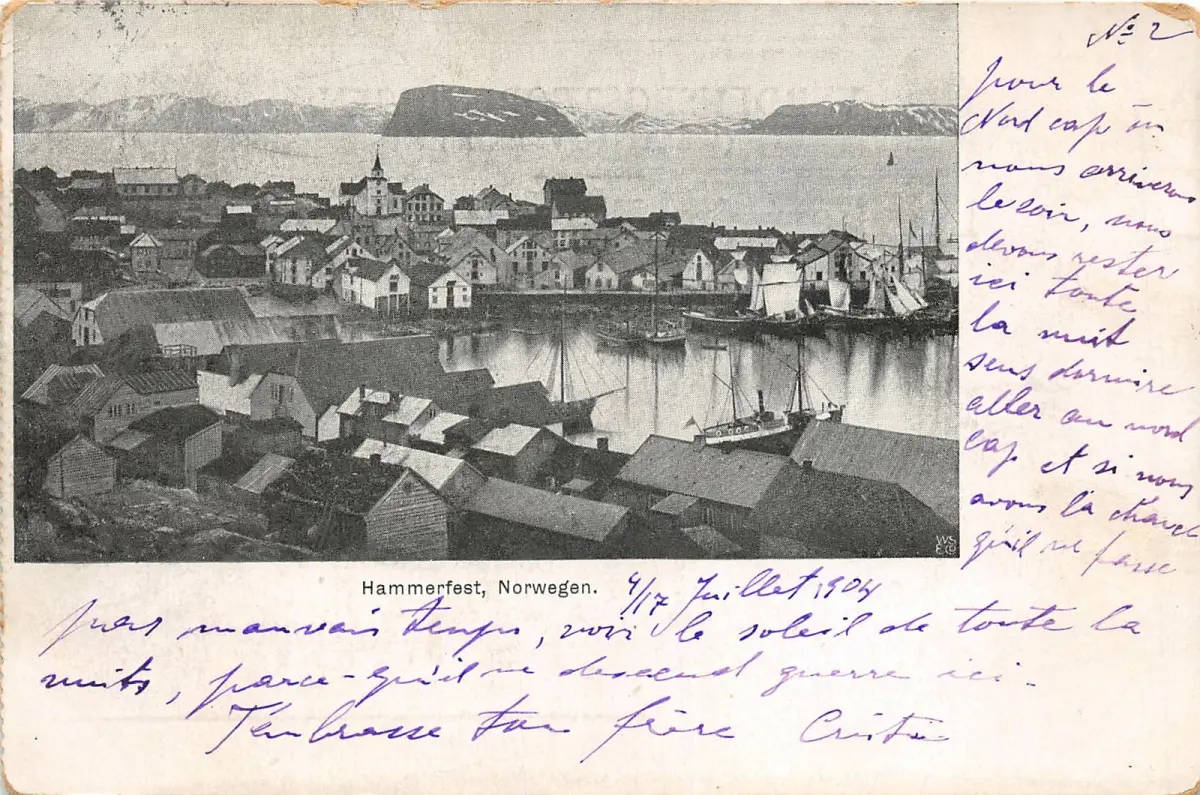 No 2
pour le
Nord cap où
nous arriverons
le soir, nous
devons rester
ici toute
la nuit
sens dormire
aller au nord
cap et si nous
avons la chance
qu'il ne fasse
Hammerfest, Norwegen.
4/17 Juillet 1904
pas mauvais temps, voir le soleil de toute la
nuits, parce-qu'il ne descend guerre ici.
T'embrasse ton frère